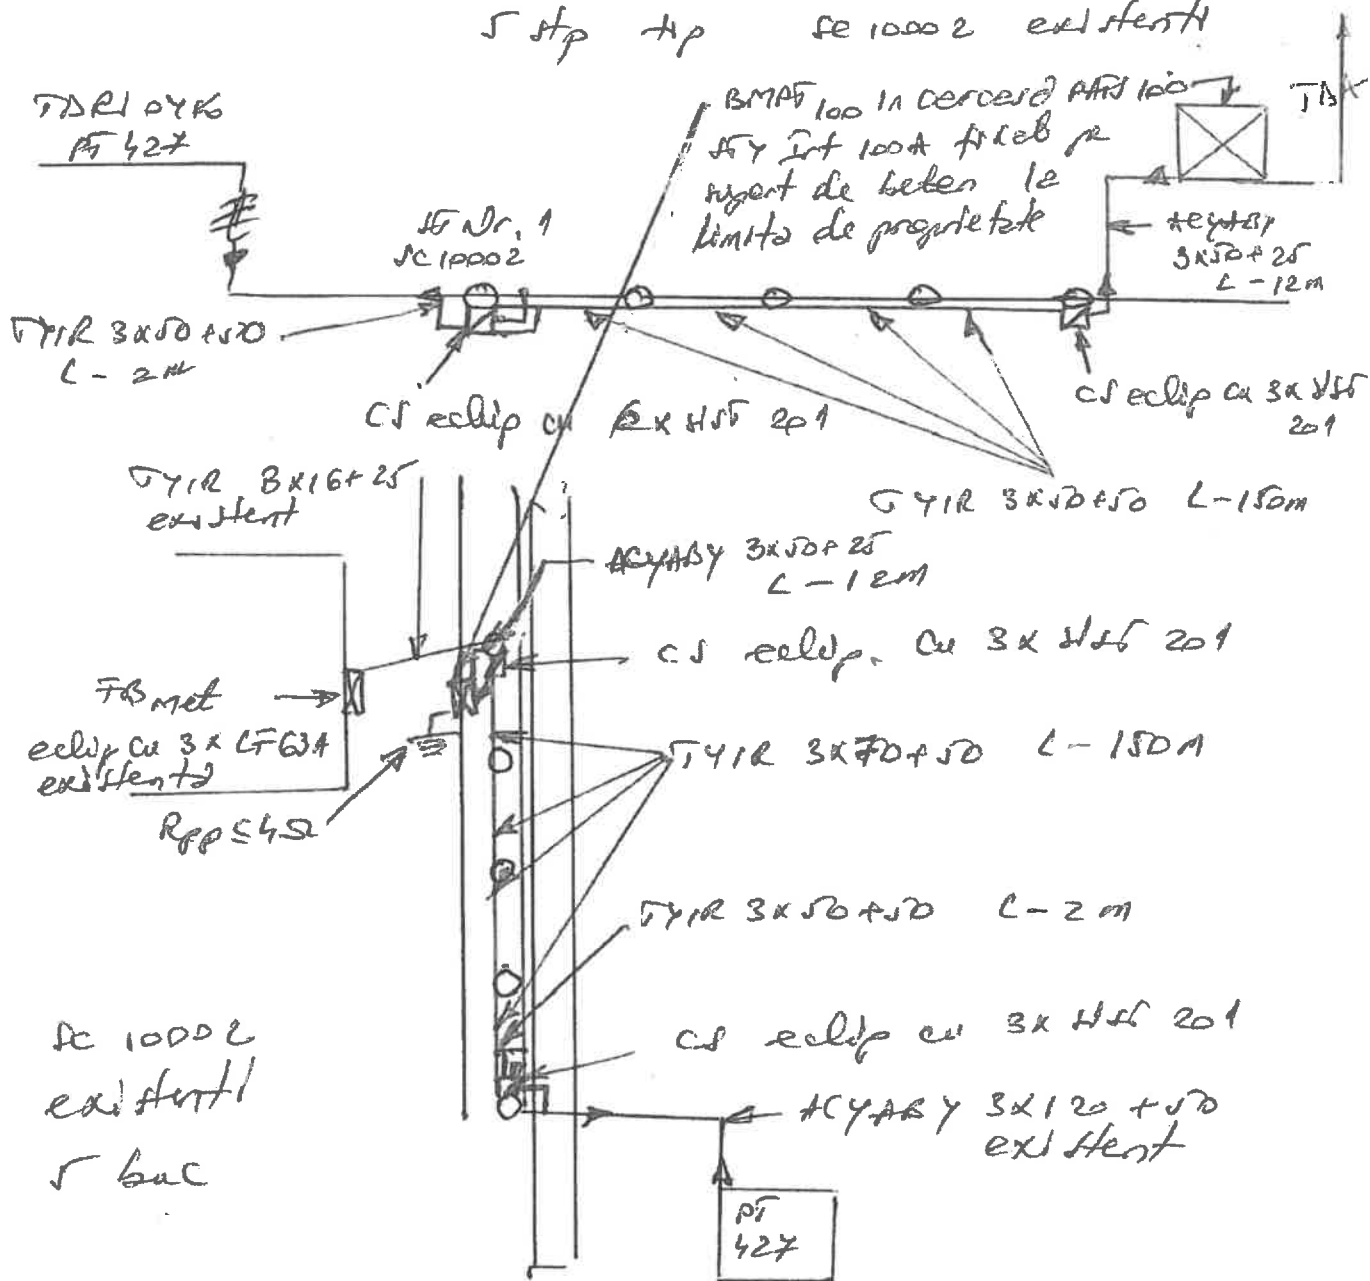 5 stp tip SC 10002 existenti
TDRI 0,4 KV
PT 427
BMPT 100 in carcasa PAFS 100
Int 100A fixat pe
suport de beton la
limita de proprietate
ST Nr. 1
SC 10002
ACYABY
3x50+25
L - 12m
TYIR 3x50+50
L - 2m
CS echip cu 6x SIST 201
CS echip cu 3x SIST
201
TYIR 3x50+50 L - 150m
TYIR 3x16+25
existent
ACYABY 3x50+25
L - 12m
CS echip. cu 3x SIST 201
met
echip cu 3x LF 63A
existenta
TYIR 3x70+50 L - 150m
Rpp ≤ 4Ω
TYIR 3x50+50 L - 2m
SC 10002
existenti
5 buc
CS echip cu 3x SIST 201
ACYABY 3x120+50
existent
PT
427